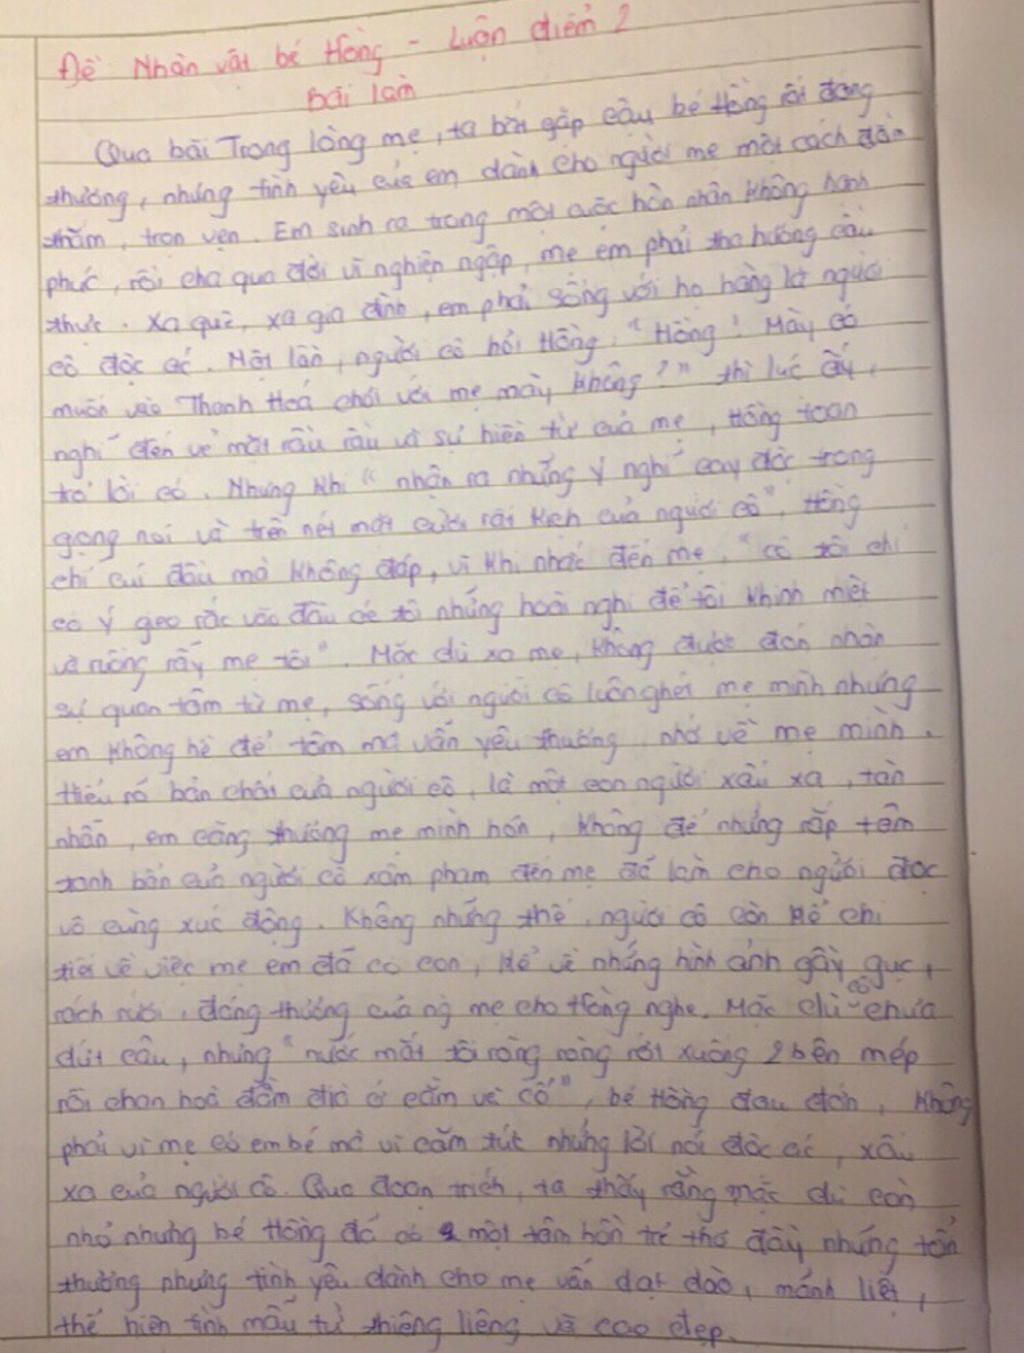 Đề Nhân vật bé Hồng - Luận điểm 2
Bài làm
Qua bài Trong lòng mẹ, ta bắt gặp cậu bé Hồng rất đáng
thương, nhưng tình yêu của em dành cho người mẹ một cách đằm
thắm, trọn vẹn. Em sinh ra trong một cuộc hôn nhân không hạnh
phúc, rồi cha qua đời vì nghiện ngập, mẹ em phải tha hương cầu
thực. Xa quê, xa gia đình, em phải sống với họ hàng là người
cô độc ác. Một lần, người cô hỏi Hồng: "Hồng! Mày có
muốn vào Thanh Hoá chơi với mẹ mày không?" thì lúc ấy,
nghĩ đến vẻ mặt rầu rầu và sự hiền từ của mẹ, Hồng toan
trả lời có. Nhưng khi "nhận ra những ý nghĩ cay độc trong
giọng nói và trên nét mặt cười rất kịch của người cô", Hồng
chỉ cúi đầu mà không đáp, vì khi nhắc đến mẹ, "cô tôi chỉ
có ý gieo rắc vào đầu óc tôi những hoài nghi để tôi khinh miệt
và ruồng rẫy mẹ tôi". Mặc dù xa mẹ, không được đón nhận
sự quan tâm từ mẹ, sống với người cô luôn ghét mẹ mình nhưng
em không hề để tâm mà vẫn yêu thương, nhớ về mẹ mình.
Hiểu rõ bản chất của người cô, là một con người xấu xa, tàn
nhẫn, em càng thương mẹ mình hơn, không để những rắp tâm
tanh bẩn của người cô xâm phạm đến mẹ đã làm cho người đọc
vô cùng xúc động. Không những thế, người cô còn kể chi
tiết về việc mẹ em đã có con, kể về những hình ảnh gầy gục,
rách rưới, đáng thương của ng mẹ cho Hồng nghe. Mặc dù cô chưa
dứt câu, nhưng "nước mắt tôi ròng ròng rớt xuống 2 bên mép
rồi chan hoà đầm đìa ở cằm và cổ", bé Hồng đau đớn, không
phải vì mẹ có em bé mà vì căm tức những lời nói độc ác, xấu
xa của người cô. Qua đoạn trích, ta thấy rằng mặc dù còn
nhỏ nhưng bé Hồng đã có một tâm hồn trẻ thơ đầy những tổn
thương nhưng tình yêu dành cho mẹ vẫn dạt dào, mãnh liệt,
thể hiện tình mẫu tử thiêng liêng và cao đẹp.